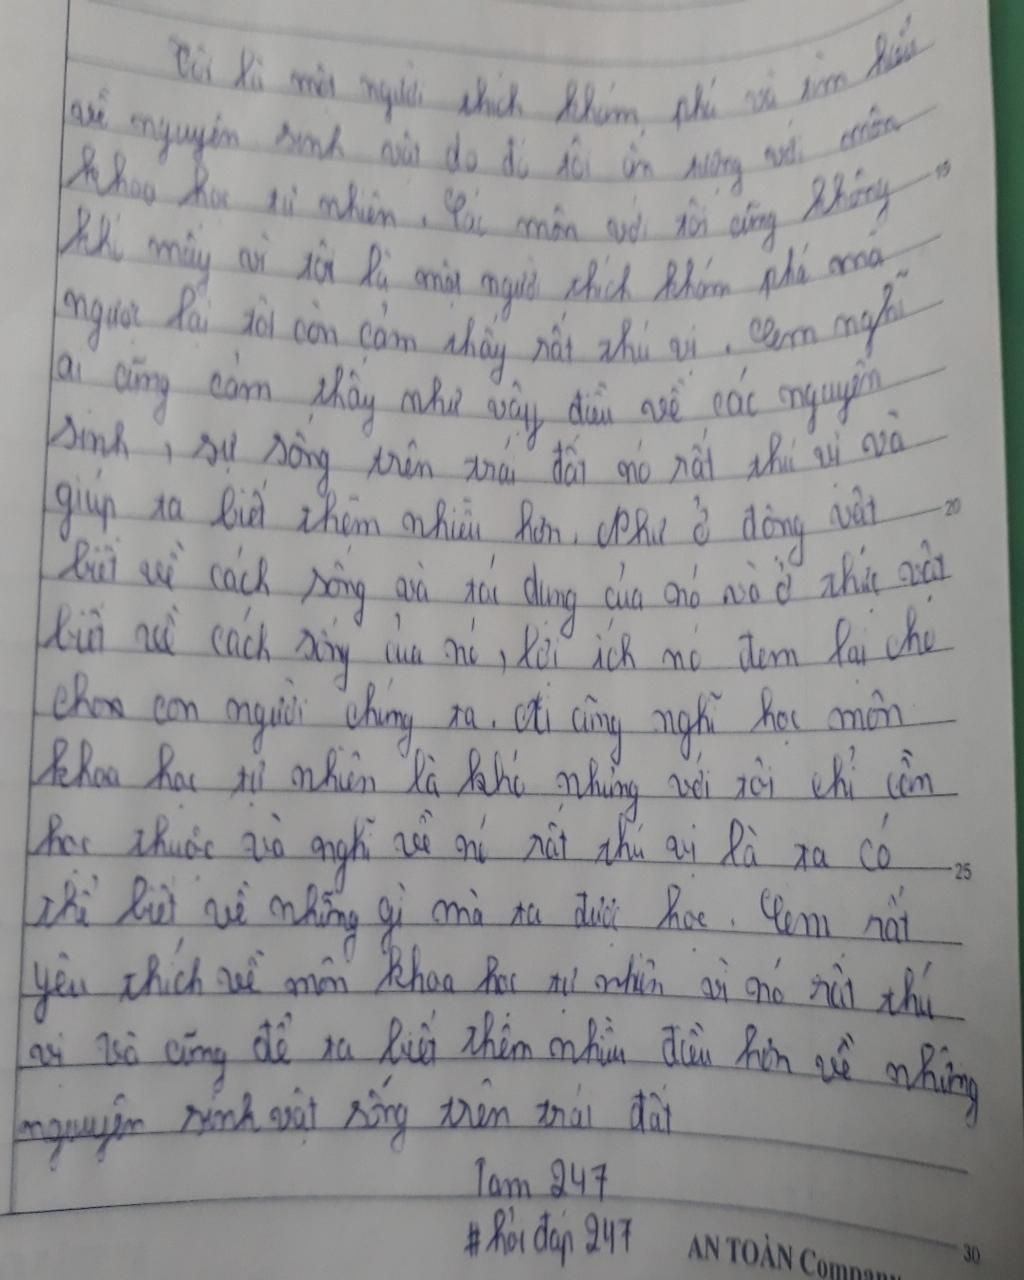 Tôi là một người thích khám phá và tìm hiểu
về nguyên sinh vật do đó tôi ấn tượng với môn
khoa học tự nhiên. Các môn với tôi cũng không
khí mấy vì tôi là một người thích khám phá mà
ngược lại tôi còn cảm thấy rất thú vị. Cem nghĩ
ai cũng cảm thấy như vậy điều về các nguyên
sinh, sự sống trên trái đất nó rất thú vị và
giúp ta biết thêm nhiều hơn. Như ở động vật
biết về cách sống và tác dụng của nó và ở thức vật
biết về cách sống của nó, lợi ích nó đem lại cho
con người chúng ta. Ai cũng nghĩ học môn
khoa học tự nhiên là khó nhưng với tôi chỉ cần
học thuộc và nghĩ về nó rất thú vị là ta có
thể biết về những gì mà ta được học. Cem rất
yêu thích về môn khoa học tự nhiên vì nó rất thú
vị và cũng để ta biết thêm nhiều điều hơn về những
nguyên sinh vật sống trên trái đất
Tam 247
#hỏi đáp 247
AN TOÀN Company
15
20
25
30